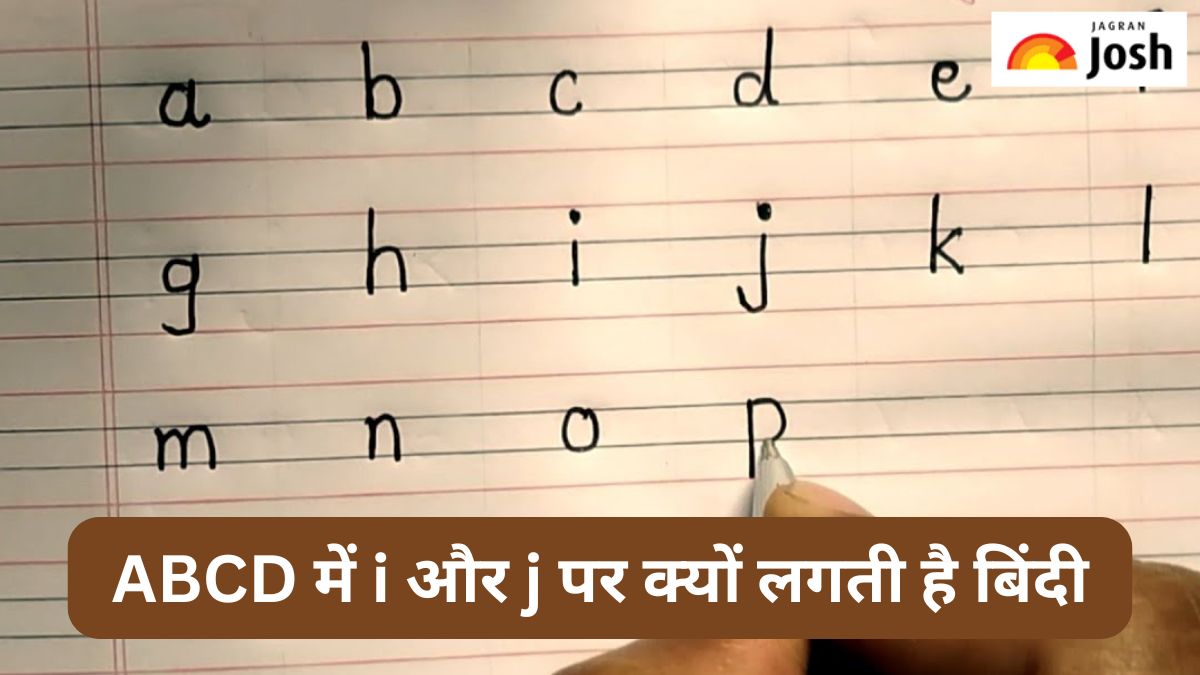 JAGRAN
Josh
a b c d e
g h i j k l
m n o p
ABCD में i और j पर क्यों लगती है बिंदी